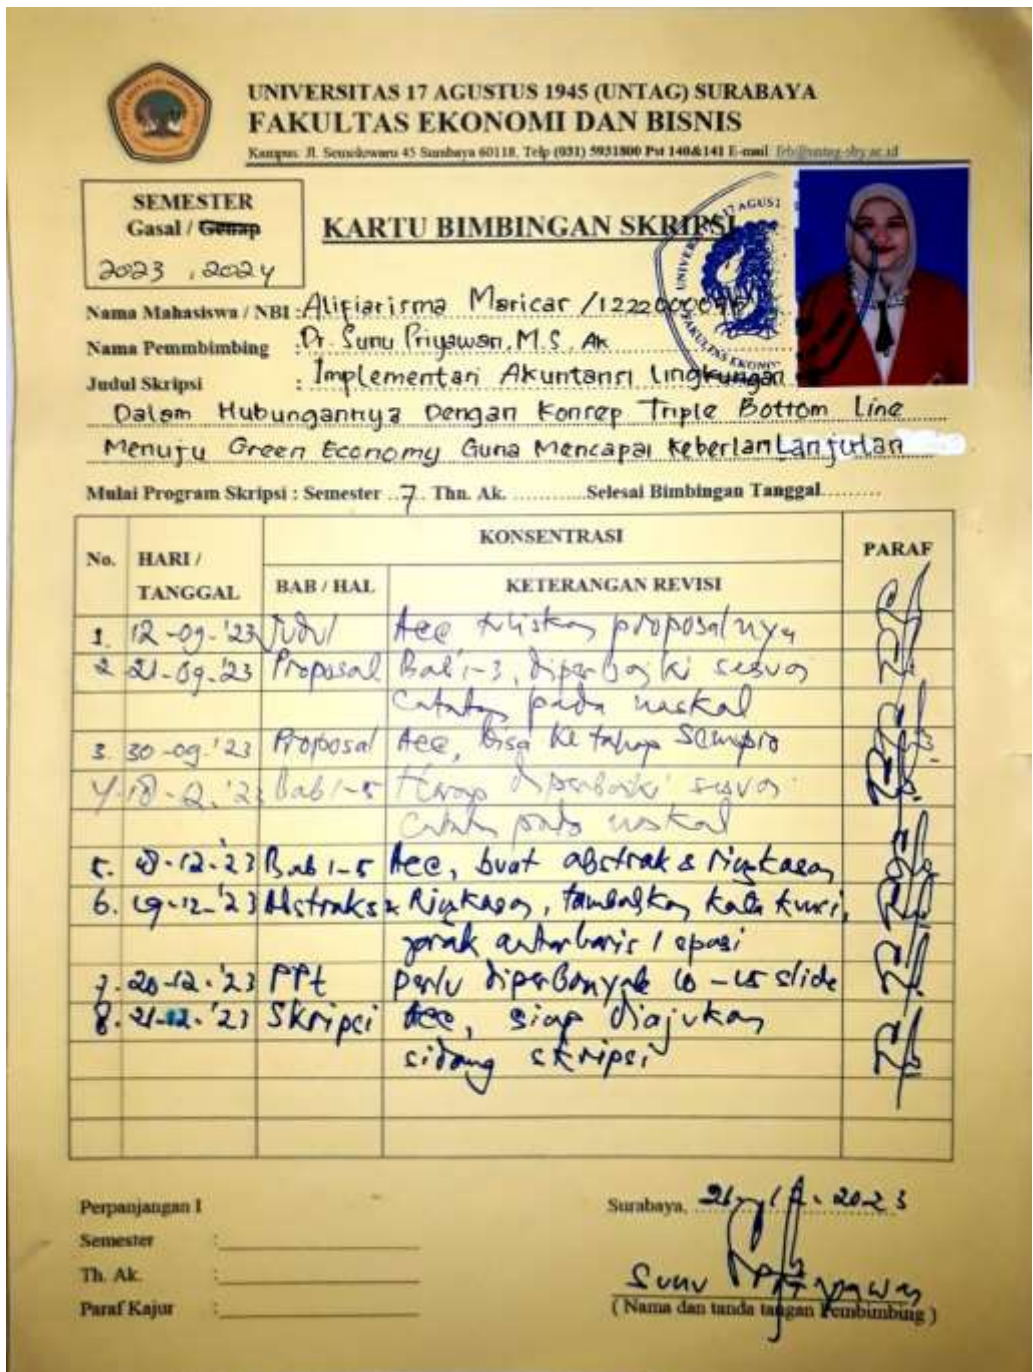 UNIVERSITAS 17 AGUSTUS 1945 (UNTAG) SURABAYA
FAKULTAS EKONOMI DAN BISNIS
Kampus: Jl. Semolowaru 45 Surabaya 60118, Telp (031) 5931800 Pst 140&141 E-mail
SEMESTER
Gasal / Genap
2023 , 2024
KARTU BIMBINGAN SKRIPSI
Nama Mahasiswa / NBI : Alifiarisma Maricar /
Nama Pemmbimbing : Dr. Sunu Priyawan, M.S. Ak
Judul Skripsi : Implementasi Akuntansi Lingkungan
Dalam Hubungannya Dengan Konsep Triple Bottom Line
Menuju Green Economy Guna Mencapai Keberlanlanjutan
Mulai Program Skripsi : Semester 7 Thn. Ak. Selesai Bimbingan Tanggal
No. HARI / TANGGAL KONSENTRASI PARAF
BAB / HAL KETERANGAN REVISI
1. 12-09-'23 Judul Acc tuliskan proposalnya
2 21-09-'23 Proposal Bab 1-3, diperbaiki sesuai
catatan pada naskah
3. 30-09-'23 Proposal Acc, bisa ke tahap Sempro
4. Bab 1-5 Harap diperbaiki sesuai
catatan pada naskah
5. Bab 1-5 Acc, buat abstrak & ringkasan
6. 19-12-'23 Abstraks & Ringkasan, tambahkan kata kunci,
jarak antar baris 1 spasi
7. 20-12-'23 PPt perlu diperbanyak 10-15 slide
8. 21-12-'23 Skripsi Acc, siap diajukan
sidang skripsi
Perpanjangan I
Semester :
Th. Ak. :
Paraf Kajur :
Surabaya, 2023
Sunu Priyawan
( Nama dan tanda tangan Pembimbing )